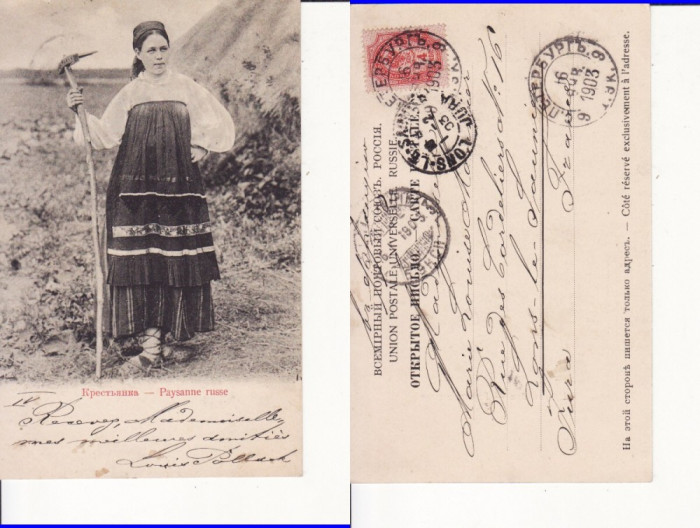 Крестьянка — Paysanne russe
IV
Recevez, Mademoiselle,
mes meilleures amitiés
Louis Pollack
ВСЕМІРНЫЙ ПОЧТОВЫЙ СОЮЗЪ. РОССІЯ.
UNION POSTALE UNIVERSELLE. RUSSIE.
ОТКРЫТОЕ ПИСЬМО. — CARTE POSTALE.
Mademoiselle
Marie Louise
Rue des Cordeliers No 16
Lons-le-Saunier
France
Jura
На этой сторонѣ пишется только адресъ. — Côté réservé exclusivement à l'adresse.
С.ПЕТЕРБУРГЪ
1903
LONS-LE-SAUNIER
JURA
С.ПЕТЕРБУРГЪ
16
1903